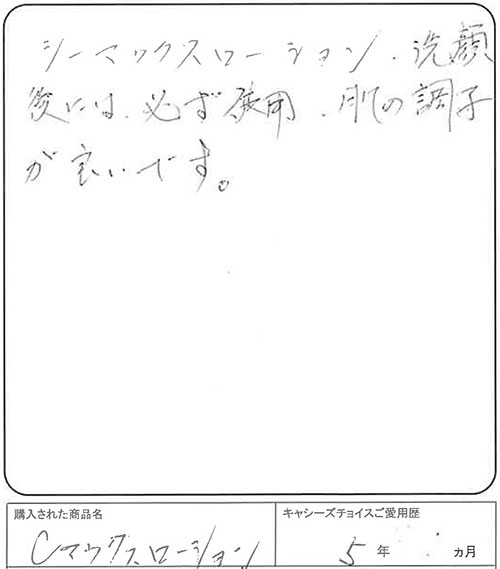 シーマックスローション、洗顔
後には、必ず使用、肌の調子
が良いです。
購入された商品名
キャシーズチョイスご愛用歴
Cマックスローション
5年 ヵ月